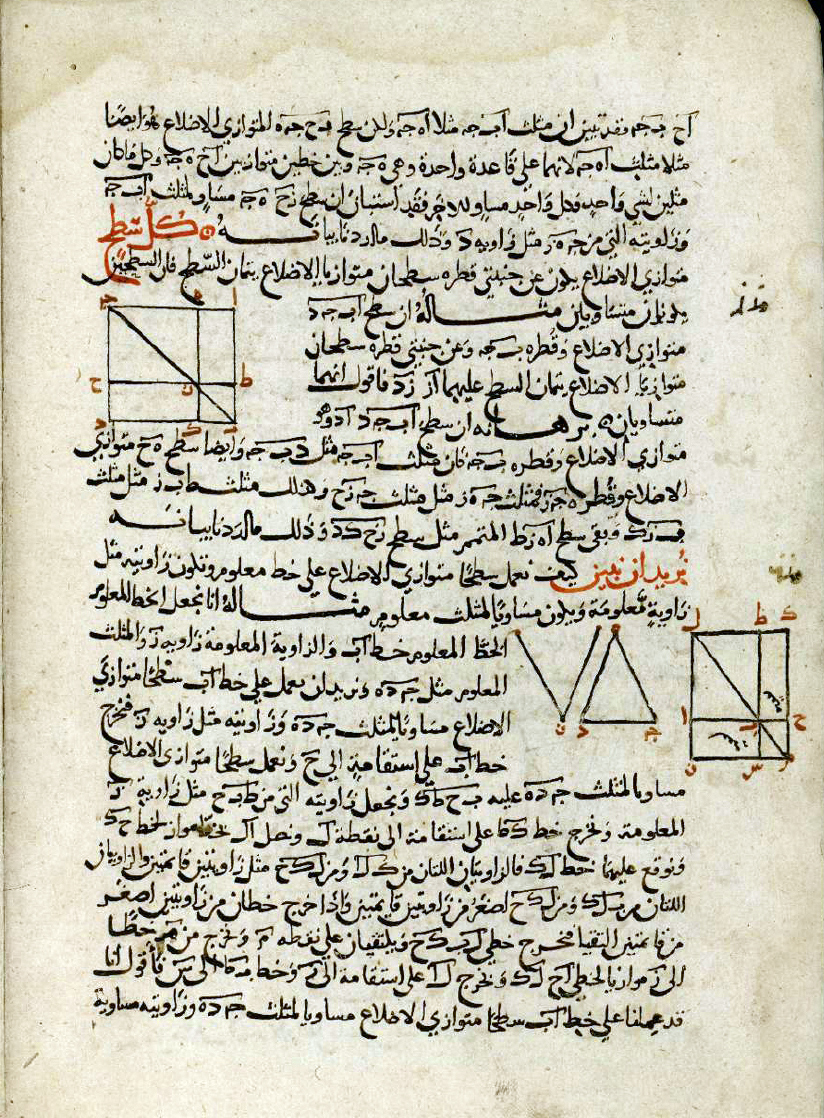 اح ب جه فقد تبين ان مثلث اب جه مثلا اه جه ولان سطح ب ح جه ه المتوازي الاضلاع هو ايضا
مثلا مثلث اه جه لانهما علي قاعدة واحدة وهي ه جه وبين خطين متوازيين اح ه جه وكل ما كان
مثلين لشي واحد فكل واحد مساو للاخر فقد استبان ان سطح زح ه جه مساو لمثلث اب جه
وزاويته التي من جه ه ز مثل زاويه د وذلك ما اردنا بيانه كل سطح
متوازي الاضلاع يكون عن جنبتي قطره سطحان متوازيا الاضلاع يتمان السطح فان السطحين
يكونان متساويان مثاله ان سطح اب جه د
متوازي الاضلاع وقطره ب جه وعن جنبتي قطره سطحان
متوازيا الاضلاع يتمان السطح عليهما از زد فاقول انهما
متساويان برهانه ان سطح اب جه د
متوازي الاضلاع وقطره ب جه فان مثلث اب جه مثل دب جه وايضا سطح ه ح متوازي
الاضلاع وقطره جه ز فمثلث جه ه ز مثل مثلث جه زح وكذلك مثلث طب ز مثل مثلث
ب زك وبقي سطح اه زط المتمم مثل سطح زح كد وذلك ما اردنا بيانه
نريد ان نبين كيف نعمل سطحا متوازي الاضلاع علي خط معلوم وتكون زاويته مثل
زاوية معلومة ويكون مساويا لمثلث معلوم مثاله انا نجعل الخط المعلوم
الخط المعلوم خط اب والزاوية المعلومة زاويه ز والمثلث
المعلوم مثل جه ده ونريد ان نعمل علي خط اب سطحا متوازي
الاضلاع مساويا لمثلث جه ده وزاويته مثل زاويه ز فنخرج
خط اب علي استقامة الي ح ونعمل سطحا متوازي الاضلاع
مساويا لمثلث جه ده عليه ب ح طك ونجعل زاويته التي من ط ب ح مثل زاوية ز
المعلومة ونخرج خط كط علي استقامة الي نقطة ل ونصل ال مواز لخط ح ك
ونوقع عليهما خط لك فالزاويتان اللتان من ك ل ا ومن ل ك ح مثل زاويتين قايمتين والزاويتان
اللتان من ب ل ك ومن ل ك ح اصغر من زاويتين قايمتين واذا خرج خطان من زاويتين اصغر
من قايمتين التقيا فنخرج خطي لب كح ويلتقيان علي نقطه م ونخرج من م خطا
الي ن موازيا لخطي اح لك ونخرج لا علي استقامة الي ن وخط طب الي س فاقول انا
قد عملنا علي خط اب سطحا متوازي الاضلاع مساويا لمثلث جه ده وزاويته مساوية